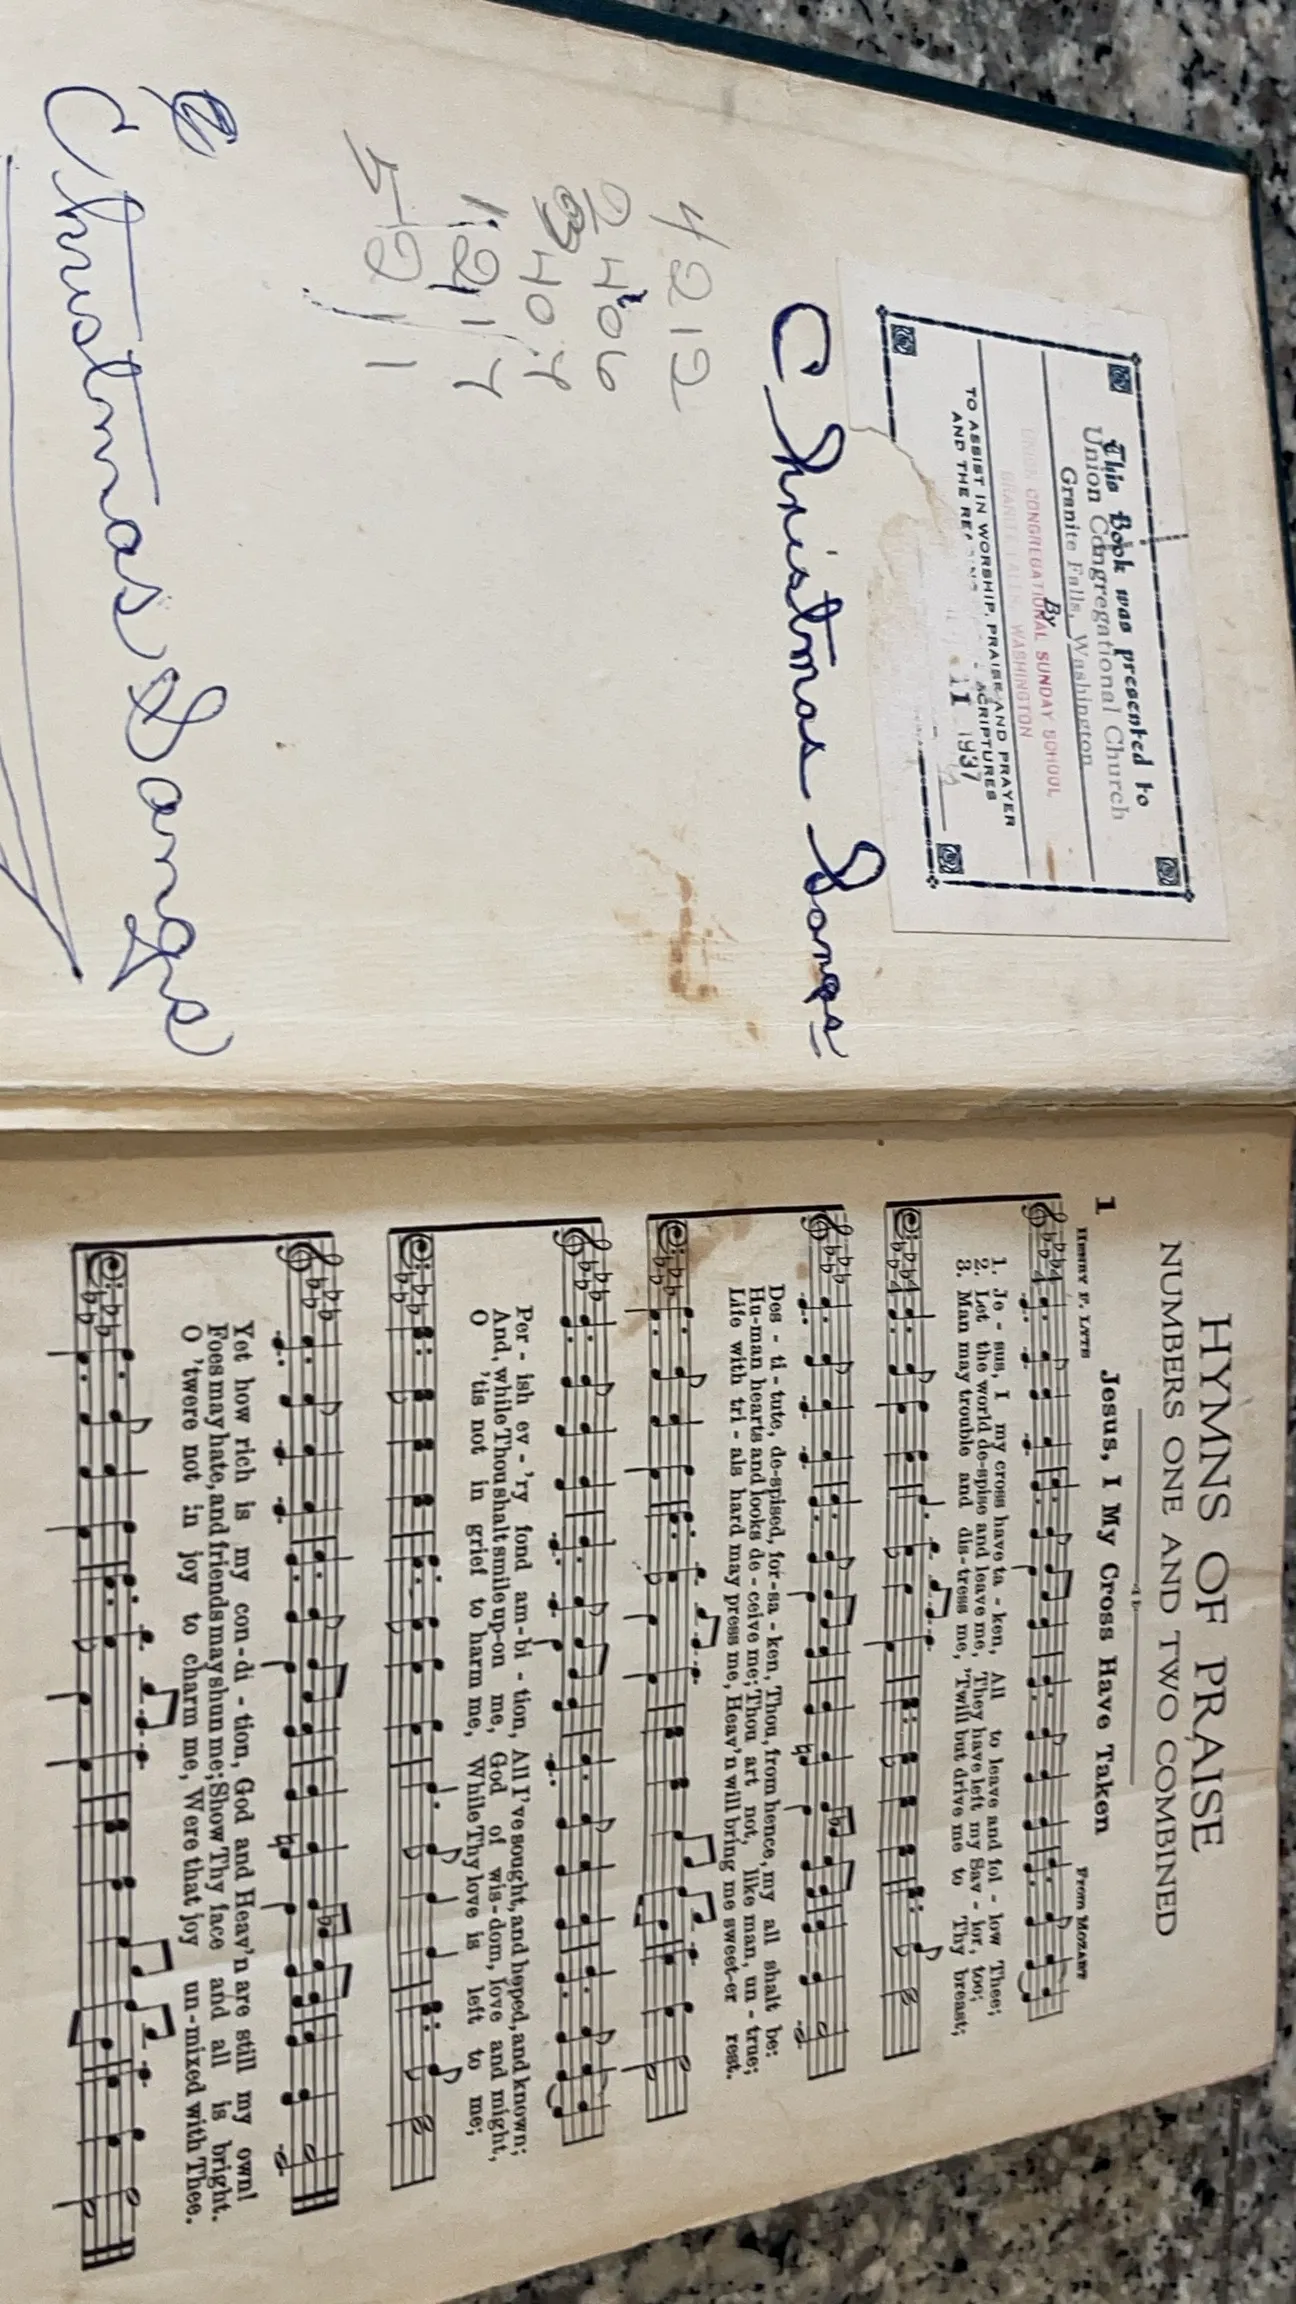 This Book was presented to
Union Congregational Church
Granite Falls, Washington
By
UNION CONGREGATIONAL SUNDAY SCHOOL
GRANITE FALLS, WASHINGTON
TO ASSIST IN WORSHIP, PRAISE AND PRAYER
AND THE READING SCRIPTURES
11 1937
Christmas Songs
212
406
404
217
211
Christmas Songs
HYMNS OF PRAISE
NUMBERS ONE AND TWO COMBINED
1 Jesus, I My Cross Have Taken
HENRY F. LYTE From MOZART
1. Je - sus, I my cross have ta - ken, All to leave and fol - low Thee;
2. Let the world de-spise and leave me, They have left my Sav - ior, too;
3. Man may trouble and dis-tress me, 'Twill but drive me to Thy breast;
Des - ti - tute, de-spised, for-sa - ken, Thou, from hence, my all shalt be:
Hu-man hearts and looks de - ceive me; Thou art not, like man, un - true;
Life with tri - als hard may press me, Heav'n will bring me sweet-er rest.
Per - ish ev - 'ry fond am-bi - tion, All I've sought, and hoped, and known;
And, while Thou shalt smile up-on me, God of wis-dom, love and might,
O 'tis not in grief to harm me, While Thy love is left to me;
Yet how rich is my con-di - tion, God and Heav'n are still my own!
Foes may hate, and friends may shun me; Show Thy face and all is bright.
O 'twere not in joy to charm me, Were that joy un-mixed with Thee.